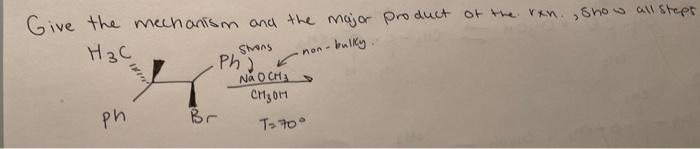 Give the mechanism and the major product of the rxn., show all steps
H3C
Strong
non-bulky.
Ph
NaOCH3
CH3OH
Ph
Br
T=70°